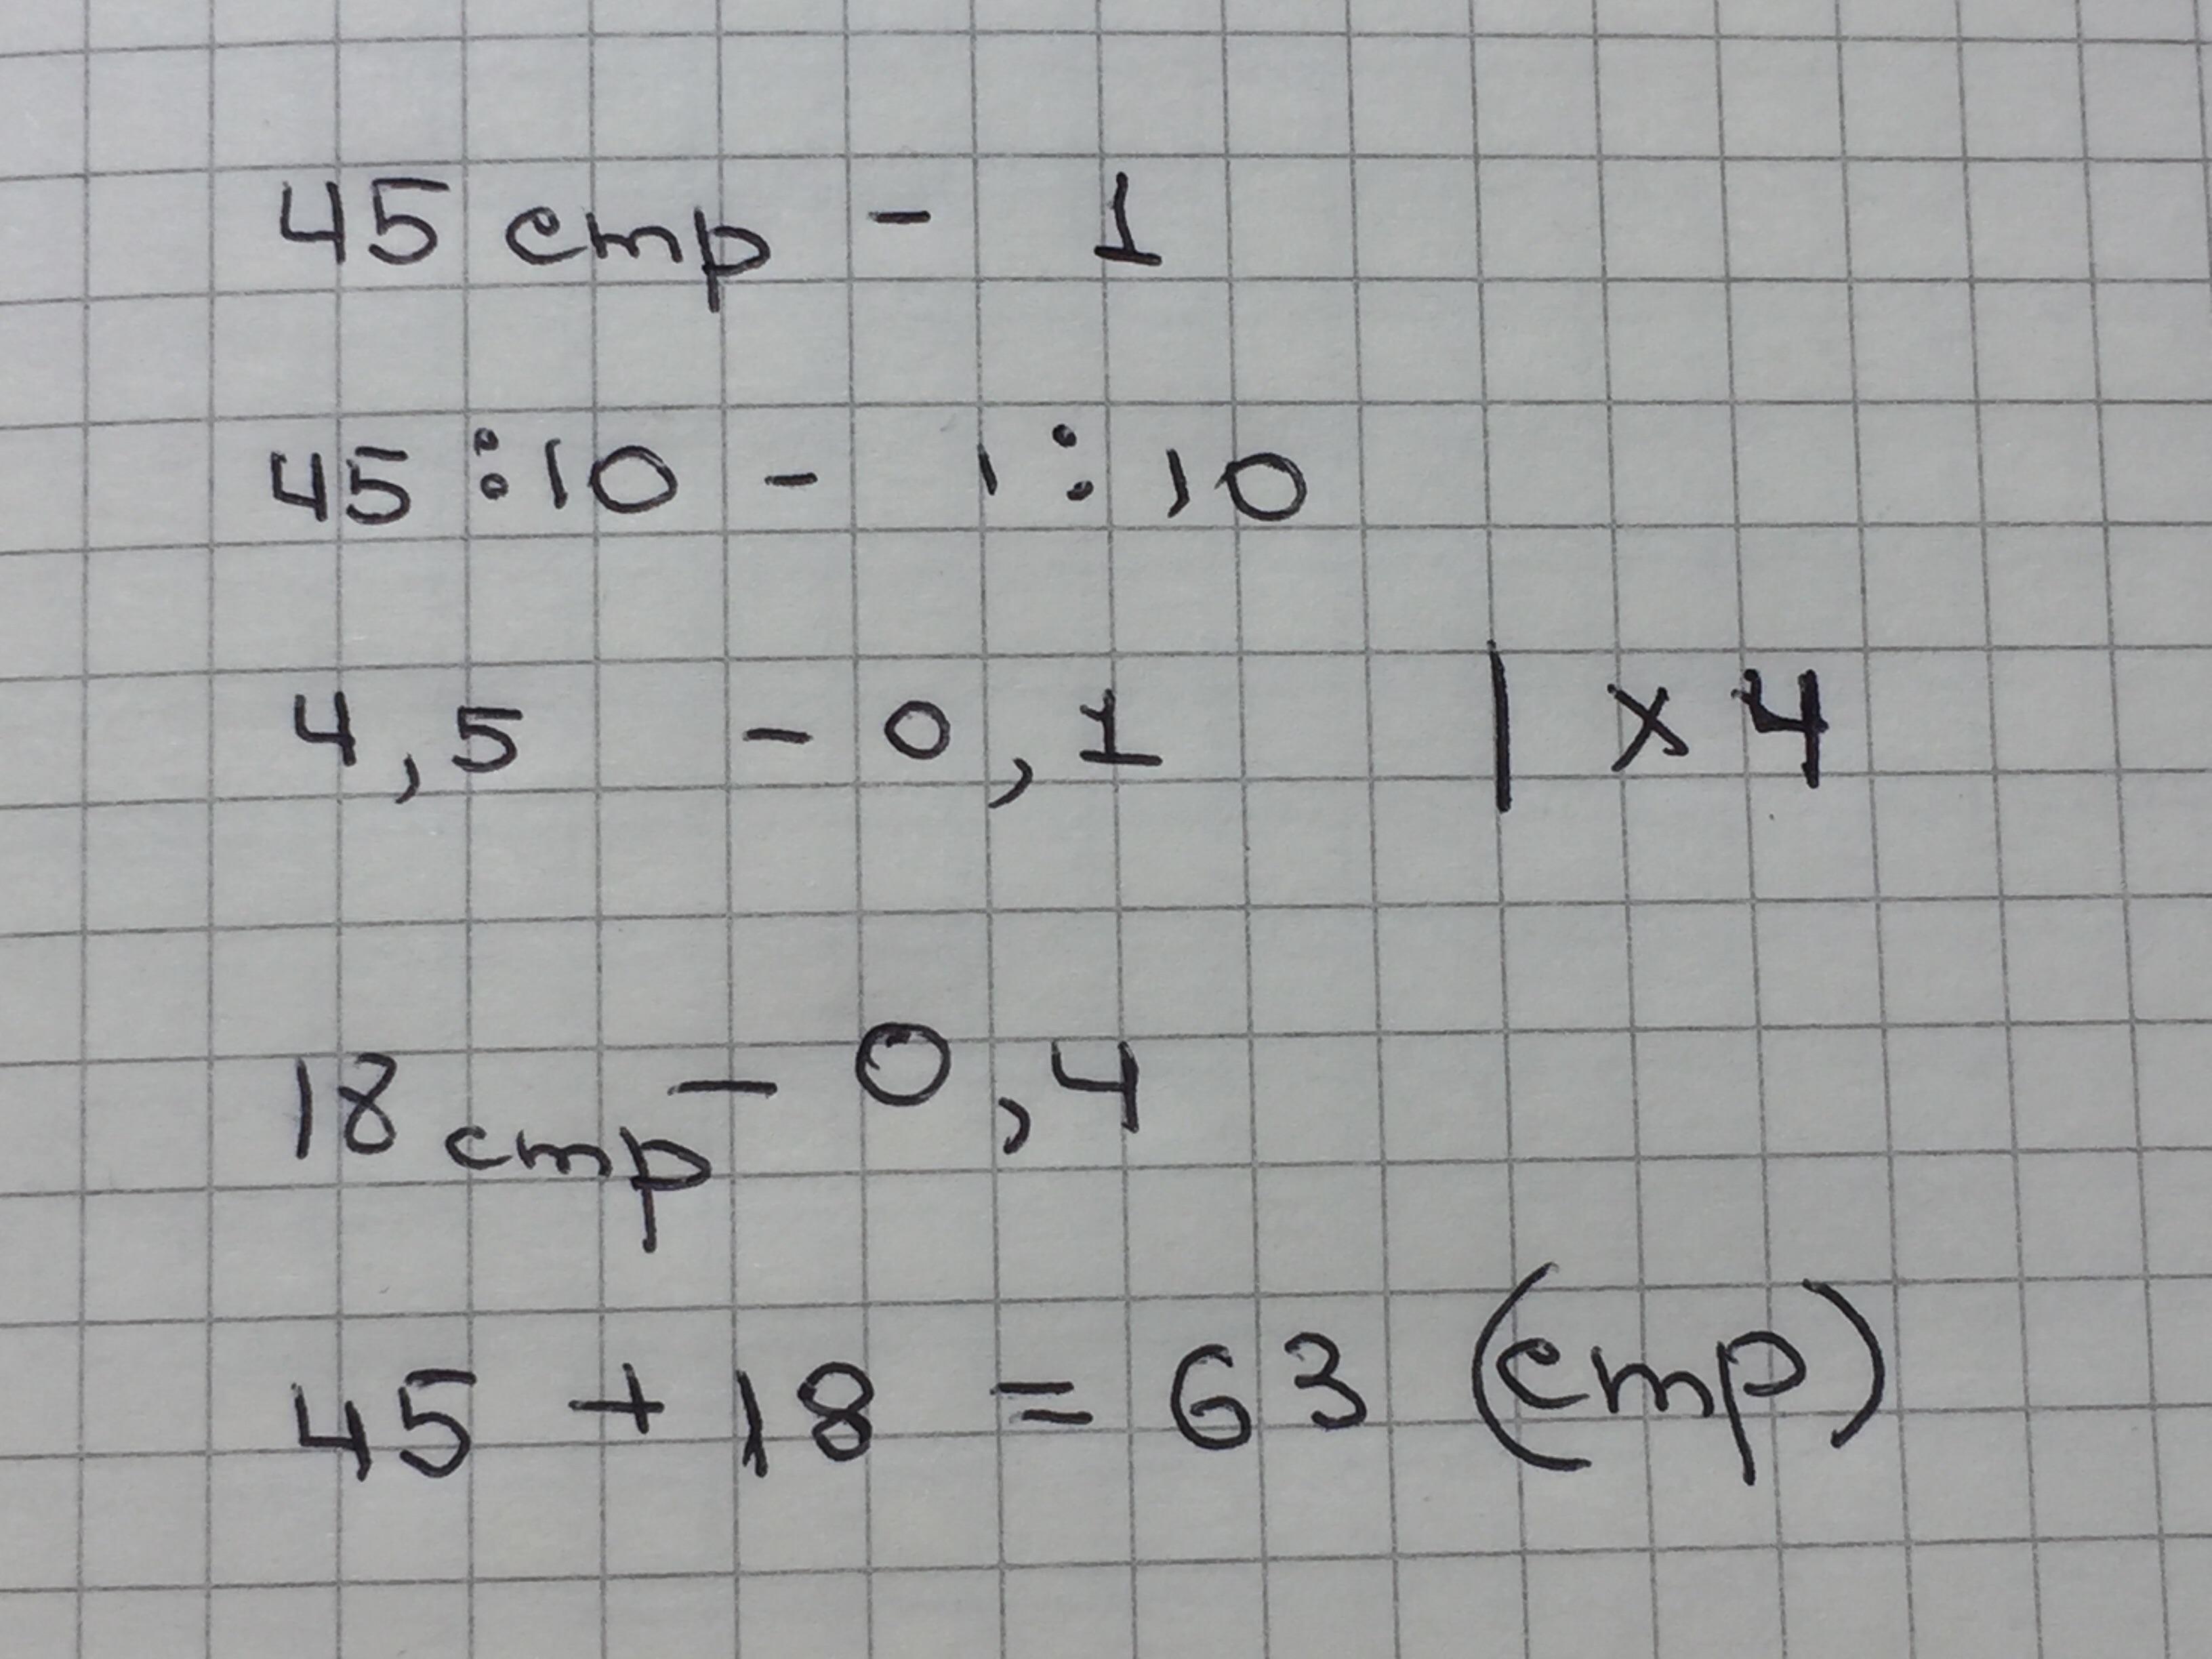 45 стр - 1
45 : 10 - 1 : 10
4,5 - 0,1 | x 4
18 стр - 0,4
45 + 18 = 63 (стр)